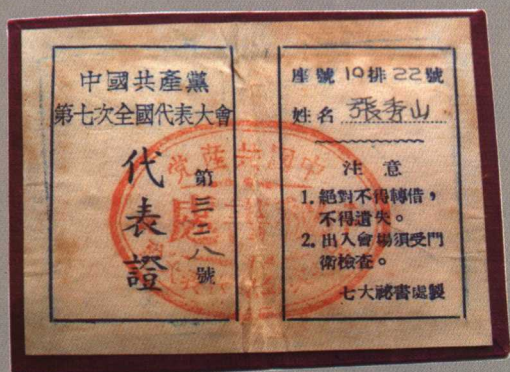 中國共產黨
第七次全國代表大會
代表證
第三二八號
座號 19排22號
姓名 張秀山
注意
1. 絕對不得轉借，
不得遺失。
2. 出入會場須受門
衛檢查。
七大祕書處製
中國共產党
處